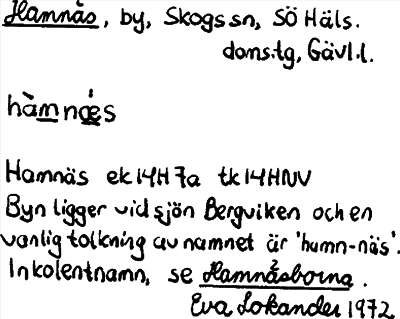 Hamnäs, by, Skogs sn, SÖ Häls.
doms.tg, Gävl.l.
hàmnǽs
Hamnäs ek 14H7a tk 14HNV
Byn ligger vid sjön Bergviken och en
vanlig tolkning av namnet är 'hamn-näs'.
Inkolentnamn, se Hamnäsborna.
Eva Lokander 1972